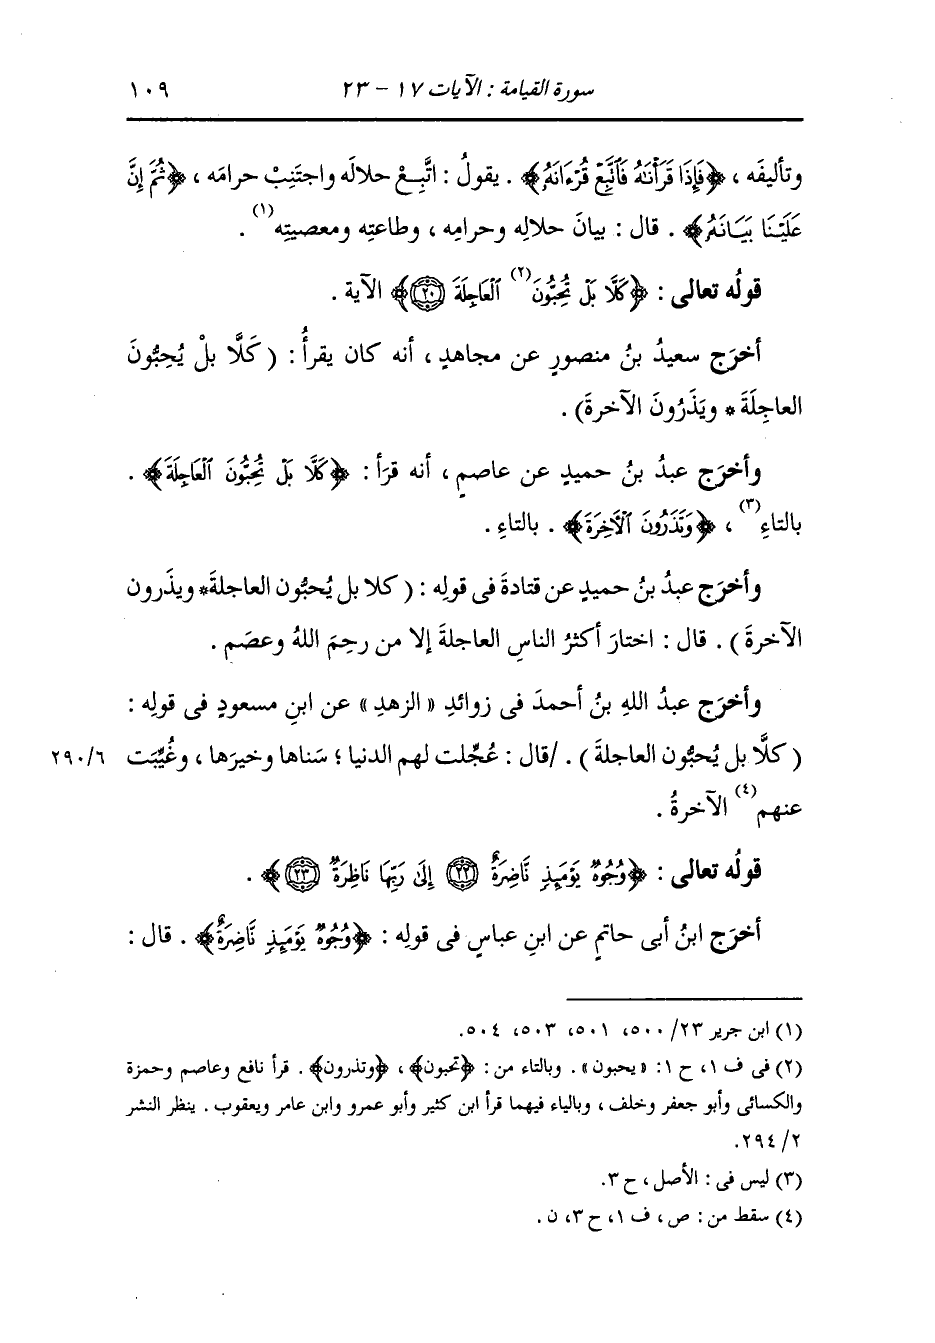 سورة القيامة : الآيات ١٧ - ٢٣ ١٠٩
وتأليفَه ، ﴿فَإِذَا قَرَأْنَٰهُ فَٱتَّبِعْ قُرْءَانَهُۥ﴾ . يقولُ : اتَّبِعْ حلالَه واجتَنِبْ حرامَه ، ﴿ثُمَّ إِنَّ
عَلَيْنَا بَيَانَهُۥ﴾ . قال : بيانَ حلالِه وحرامِه ، وطاعتِه ومعصيتِه(١) .
قولُه تعالى : ﴿كَلَّا بَلْ تُحِبُّونَ(٢) ٱلْعَاجِلَةَ ۝٢٠﴾ الآية .
أخرَج سعيدُ بنُ منصورٍ عن مجاهدٍ ، أنه كان يقرأُ : ( كَلَّا بلْ يُحِبُّونَ
العاجِلَةَ * ويَذَرُونَ الآخرةَ) .
وأخرَج عبدُ بنُ حميدٍ عن عاصمٍ ، أنه قرَأ : ﴿كَلَّا بَلْ تُحِبُّونَ ٱلْعَاجِلَةَ﴾ .
بالتاءِ(٣) ، ﴿وَتَذَرُونَ ٱلْآخِرَةَ﴾ . بالتاءِ .
وأخرَج عبدُ بنُ حميدٍ عن قتادةَ فى قولِه : ( كلا بل يُحبُّون العاجلةَ* ويذَرون
الآخرةَ ) . قال : اختارَ أكثرُ الناسِ العاجلةَ إلا من رحِمَ اللهُ وعصَم .
وأخرَج عبدُ اللهِ بنُ أحمدَ فى زوائدِ « الزهدِ » عن ابنِ مسعودٍ فى قولِه :
( كلَّا بل يُحبُّون العاجلةَ ) . /قال : عُجِّلت لهم الدنيا ؛ سَناها وخيرَها ، وغُيِّبَت ٢٩٠/٦
عنهم(٤) الآخرةُ .
قولُه تعالى : ﴿وُجُوهٌ يَوْمَئِذٍ نَّاضِرَةٌ ۝٢٢ إِلَىٰ رَبِّهَا نَاظِرَةٌ ۝٢٣﴾ .
أخرَج ابنُ أبى حاتمٍ عن ابنِ عباسٍ فى قولِه : ﴿وُجُوهٌ يَوْمَئِذٍ نَّاضِرَةٌ﴾ . قال :
(١) ابن جرير ٢٣/ ٥٠٠، ٥٠١، ٥٠٣، ٥٠٤.
(٢) فى ف ١، ح ١: « يحبون » . وبالتاء من : ﴿تحبون﴾ ، ﴿وتذرون﴾ . قرأ نافع وعاصم وحمزة
والكسائى وأبو جعفر وخلف ، وبالياء فيهما قرأ ابن كثير وأبو عمرو وابن عامر ويعقوب . ينظر النشر
٢/ ٢٩٤.
(٣) ليس فى : الأصل ، ح ٣.
(٤) سقط من : ص ، ف ١، ح ٣، ن .